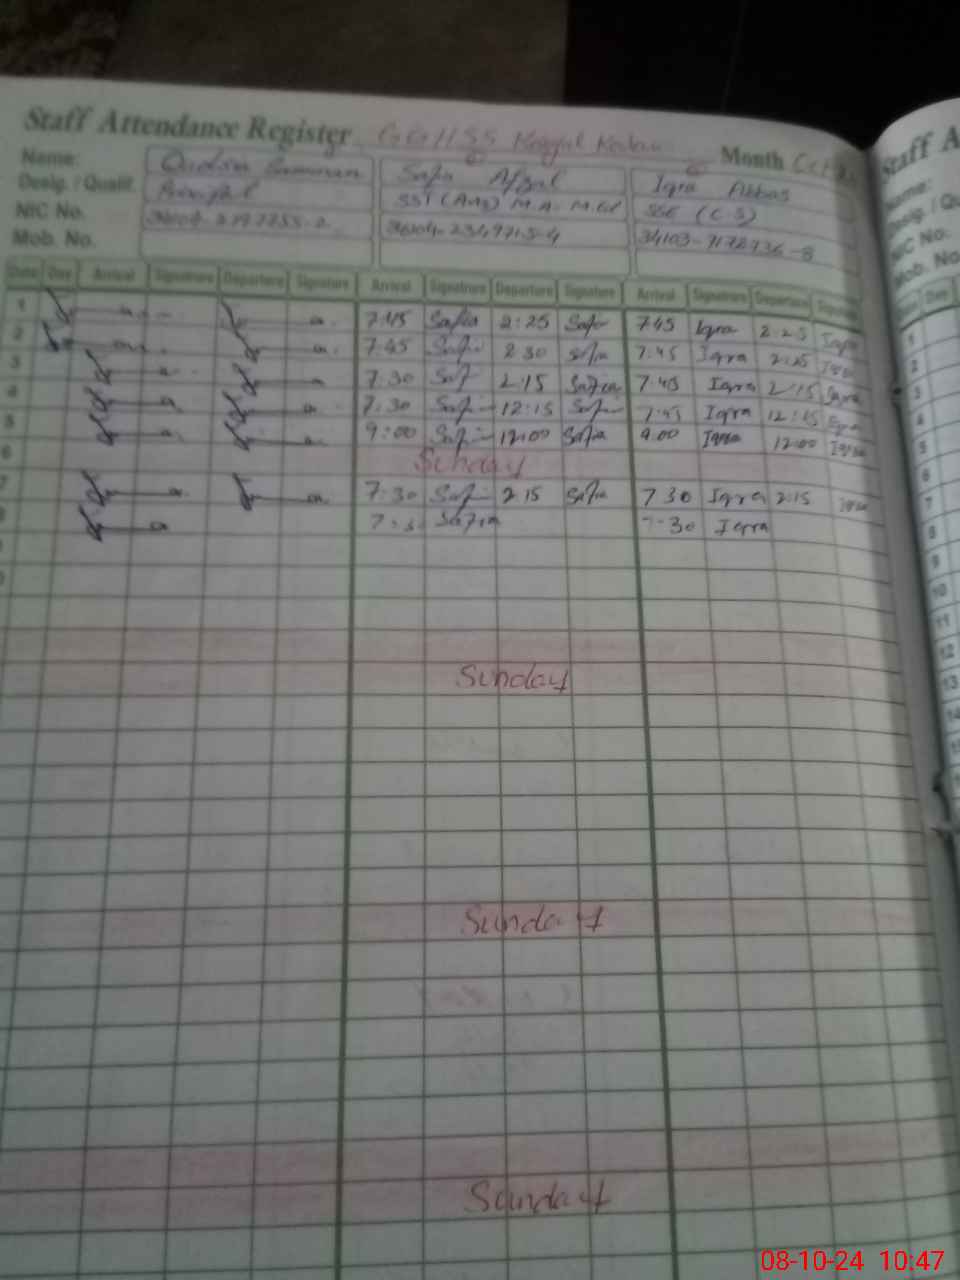 Staff Attendance Register GGHSS Month Oct
Name: Safia Afzal Iqra Abbas
Desig. / Qualif. Principal SST (Arts) M.A. M.Ed SSE (C.S)
NIC No.
Mob. No.
Date Day Arrival Signature Departure Signature Arrival Signature Departure Signature Arrival Signature Departure Signature
1 7:45 Safia 2:25 Safia 7:45 Iqra 2:25 Iqra
2 7:45 Safia 2:30 Safia 7:45 Iqra 2:25 Iqra
3 7:30 Saf 2:15 Safia 7:45 Iqra 2:15 Iqra
4 7:30 Safia 12:15 Safia 7:45 Iqra 12:15 Iqra
5 9:00 Safia 12:00 Safia 9:00 Iqra 12:00 Iqra
6 Sunday
7 7:30 Safia 2:15 Safia 7:30 Iqra 2:15 Iqra
8 7:30 Safia 7:30 Iqra
Sunday
Sunday
Sunday
Staff A
Name:
Desig. / Qu
NIC No.
Mob. No
1
2
3
4
5
6
7
8
9
10
11
12
13
14
08-10-24 10:47